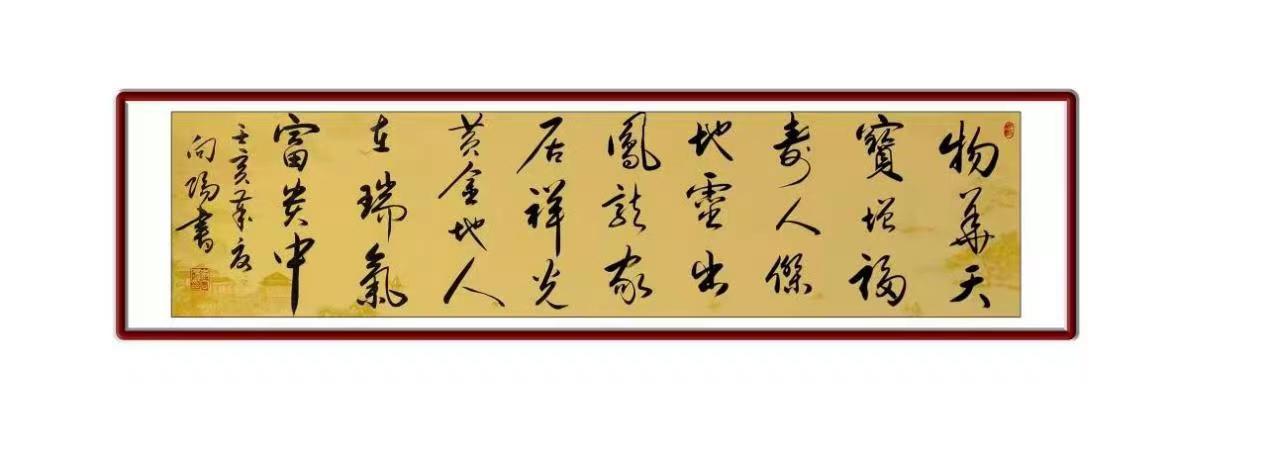 物華天
寶增福
壽人傑
地靈出
鳳龍家
居祥光
黃金地人
在瑞氣
富貴中
壬亥年夏
向陽書